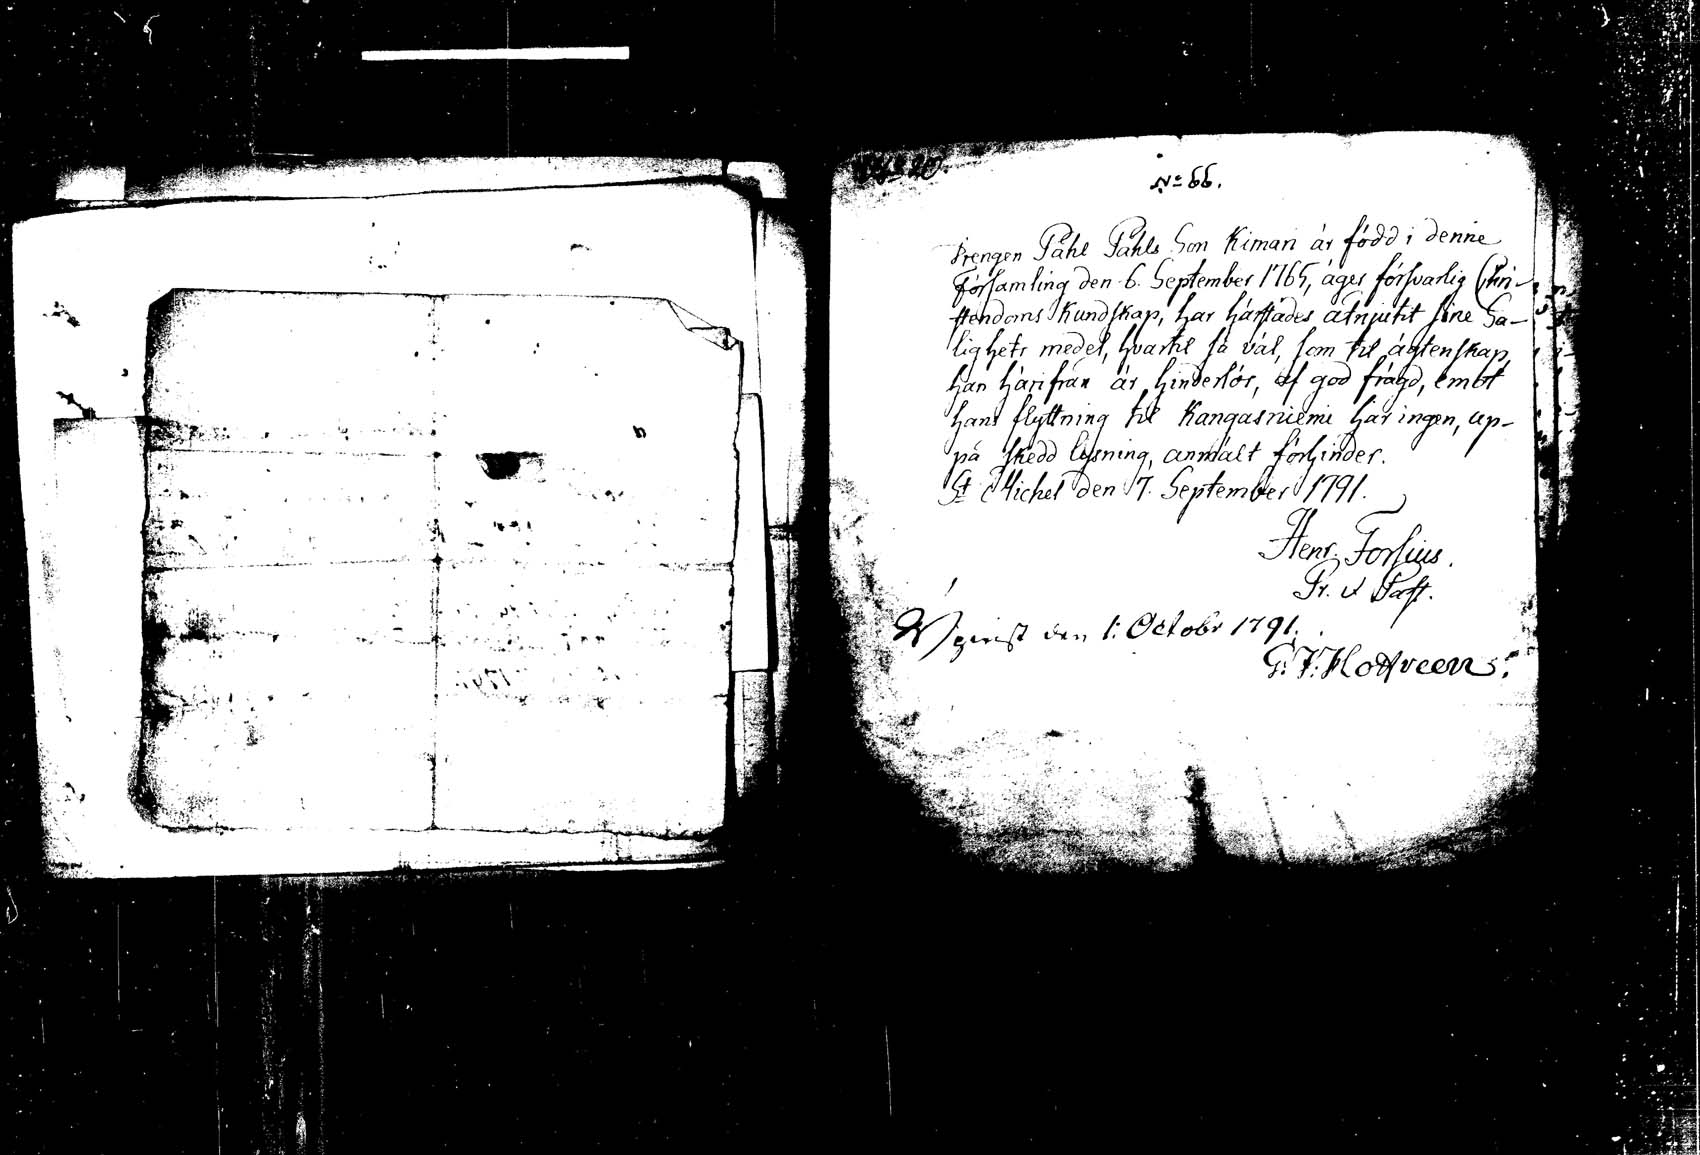 No: 66.
Drengen Påhl Påhls Son Kiman är född i denne
Församling den 6. September 1765, äger försvarlig Chri-
stendoms Kundskap, har härstädes åtnjutit sine Sa-
lighets medel, hvartil så väl, som til ägtenskap,
han härifrån är hinderlös, af god frägd, emot
hans flyttning til Kangasniemi har ingen, up-
på skedd lysning, anmält förhinder.
St Michel den 7. September 1791.
Henr. Forsius.
Pr. & Past.
den 1: Octobr 1791.